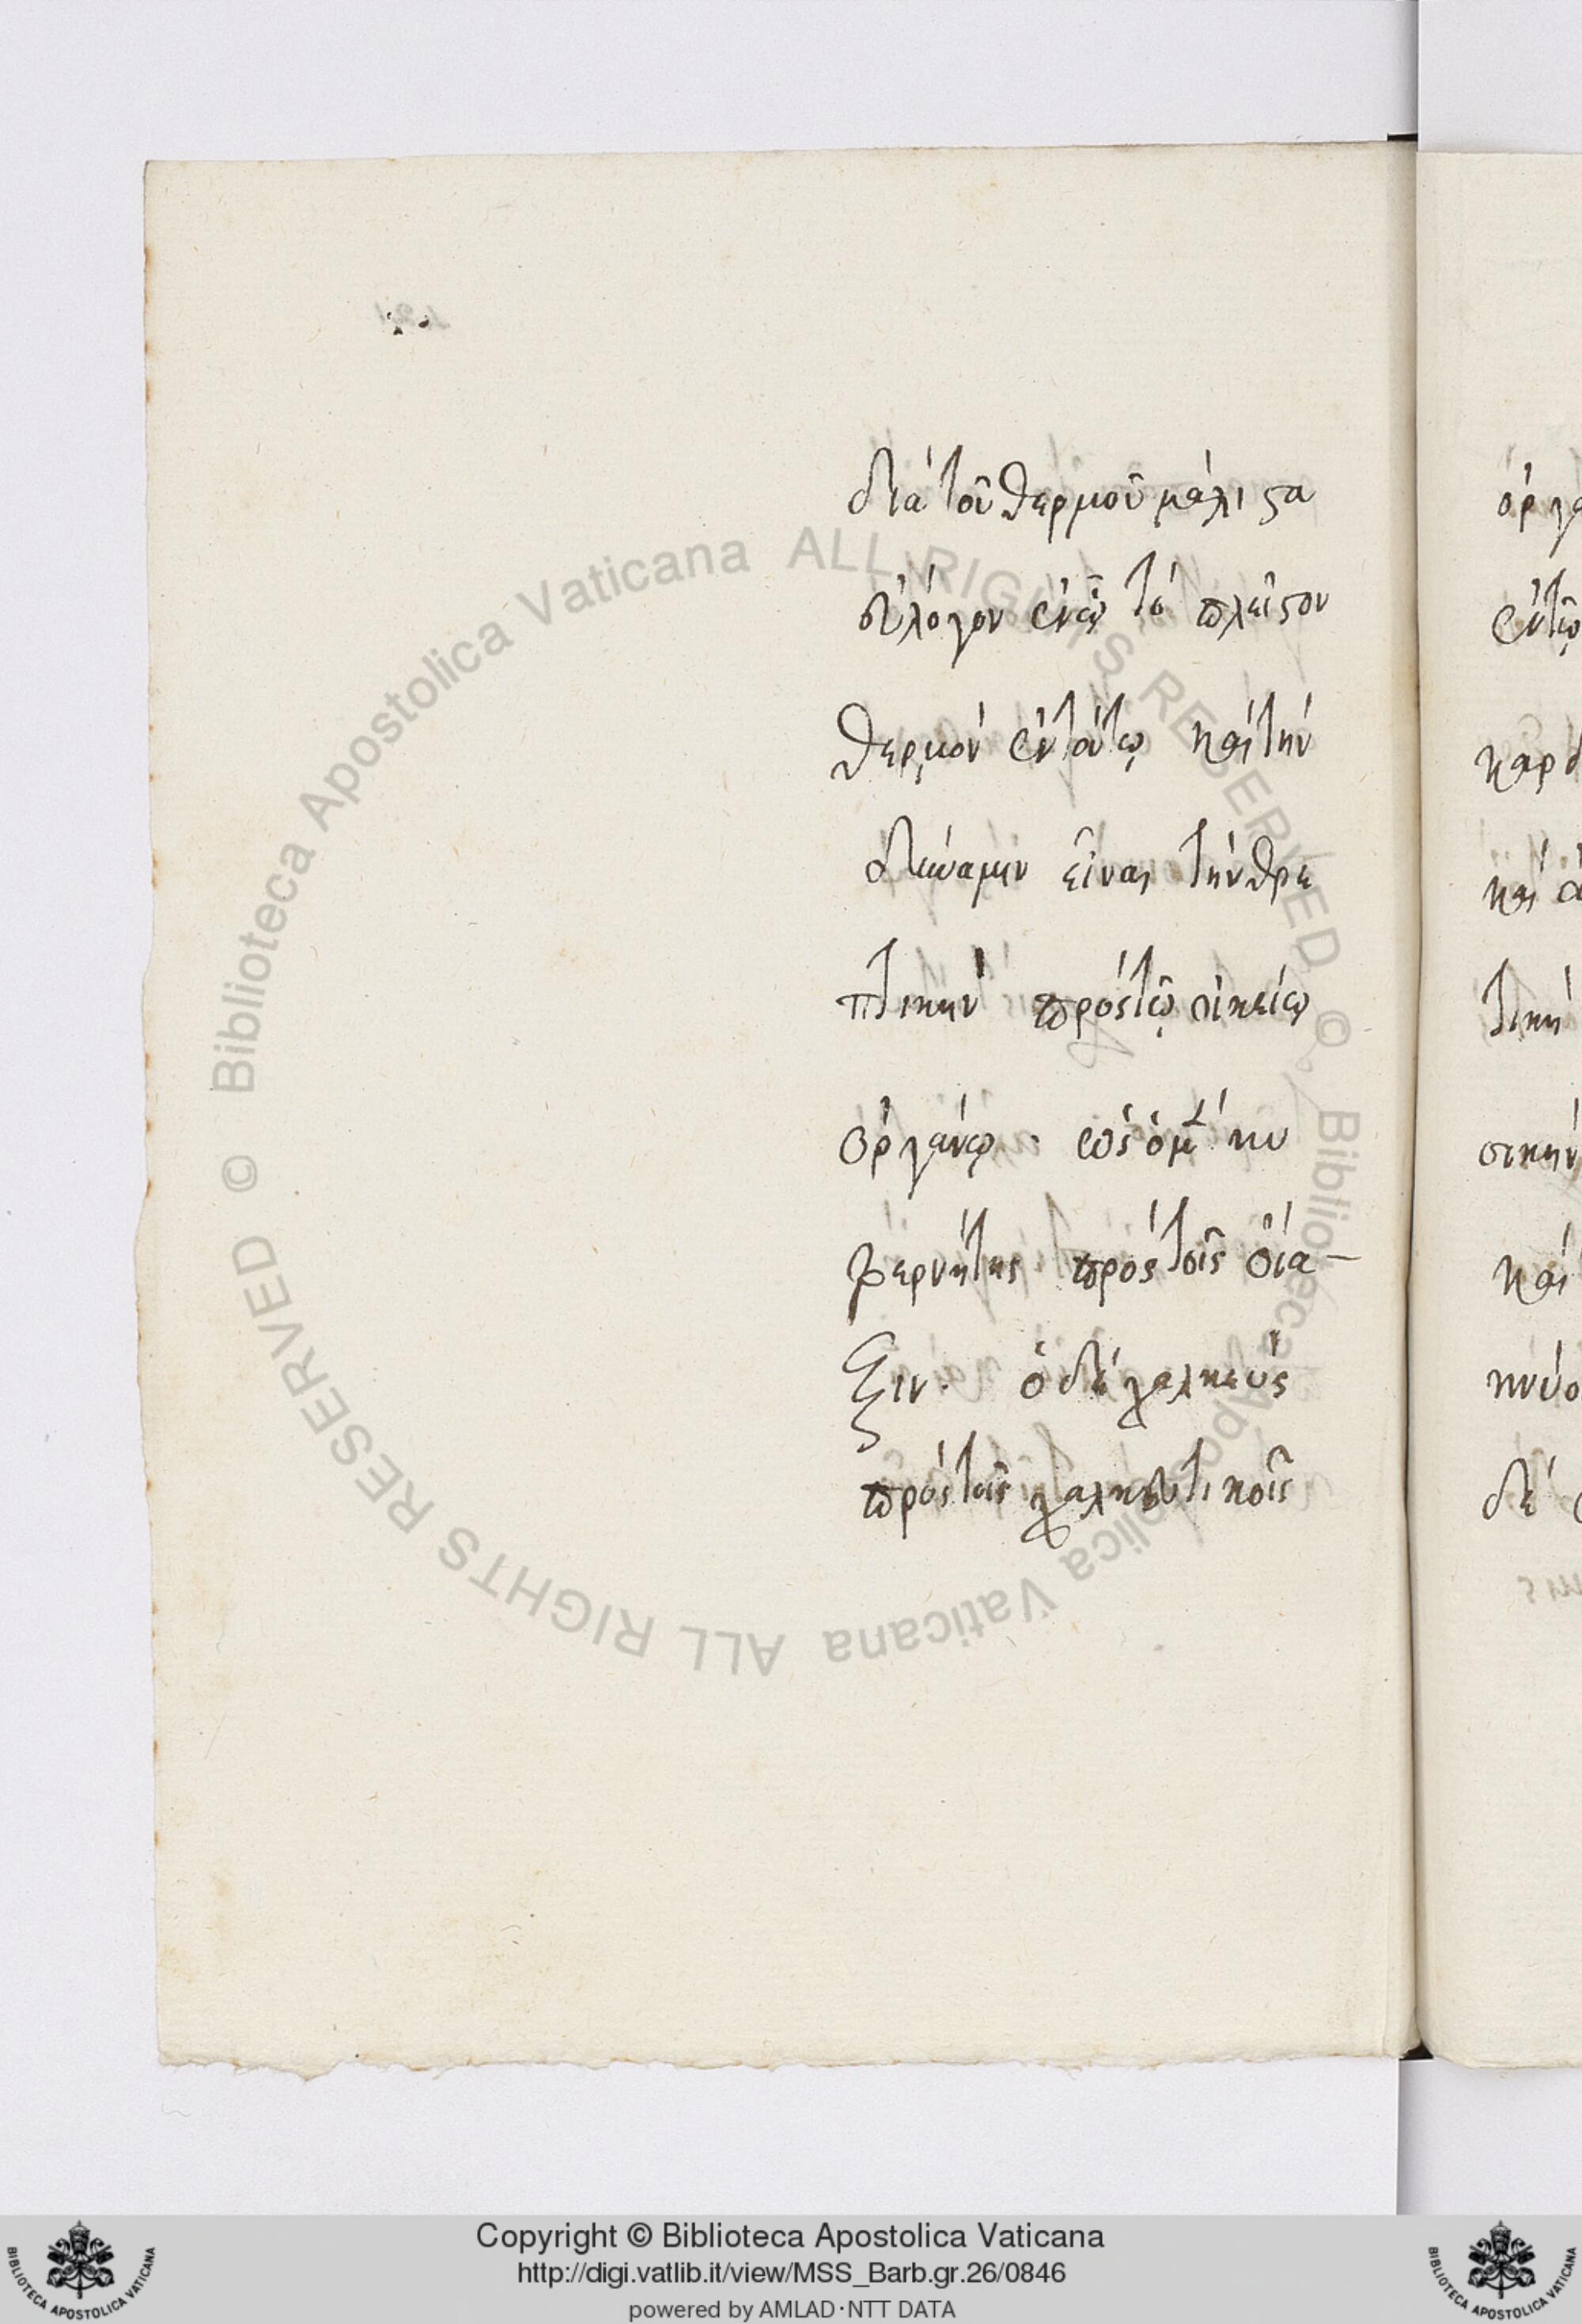 διὰ τοῦ θερμοῦ μάλιστα
εὔλογον ἐν ᾧ τὸ πλεῖστον
θερμὸν ἐν τούτῳ καὶ τὴν
δύναμιν εἶναι τὴν θρε
πτικὴν πρὸς τῷ οἰκείῳ
ὀργάνῳ. ὡς ὁ μὲν κυ
βερνήτης πρὸς τοῖς οἴα-
ξιν. ὁ δὲ χαλκεὺς
πρὸς τοῖς χαλκευτικοῖς
ὀργα
ἐν τῷ
καρδ
καὶ
τικὴ
σικὴν
καὶ
κινύο
δὲ
© Biblioteca Apostolica Vaticana ALL RIGHTS RESERVED © Biblioteca Apostolica Vaticana ALL RIGHTS RESERVED
Copyright © Biblioteca Apostolica Vaticana
http://digi.vatlib.it/view/MSS_Barb.gr.26/0846
powered by AMLAD·NTT DATA
BIBLIOTECA APOSTOLICA VATICANA
BIBLIOTECA APOSTOLICA VATICANA